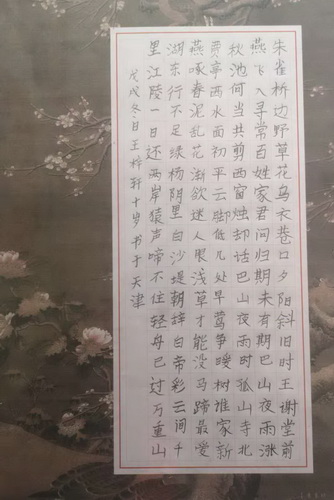 朱雀桥边野草花乌衣巷口夕阳斜旧时王谢堂前
燕飞入寻常百姓家君问归期未有期巴山夜雨涨
秋池何当共剪西窗烛却话巴山夜雨时孤山寺北
贾亭西水面初平云脚低几处早莺争暖树谁家新
燕啄春泥乱花渐欲迷人眼浅草才能没马蹄最爱
湖东行不足绿杨阴里白沙堤朝辞白帝彩云间千
里江陵一日还两岸猿声啼不住轻舟已过万重山
戊戌冬日王梓轩十岁书于天津